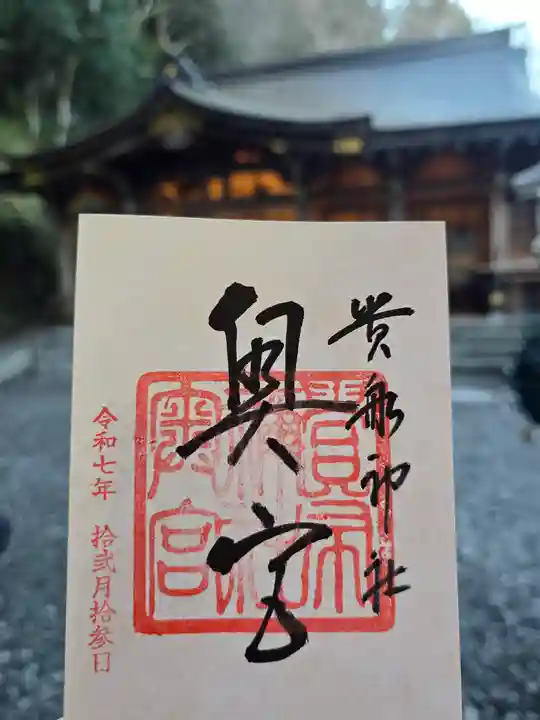 貴船神社
奥宮
令和七年 拾弐月拾参日